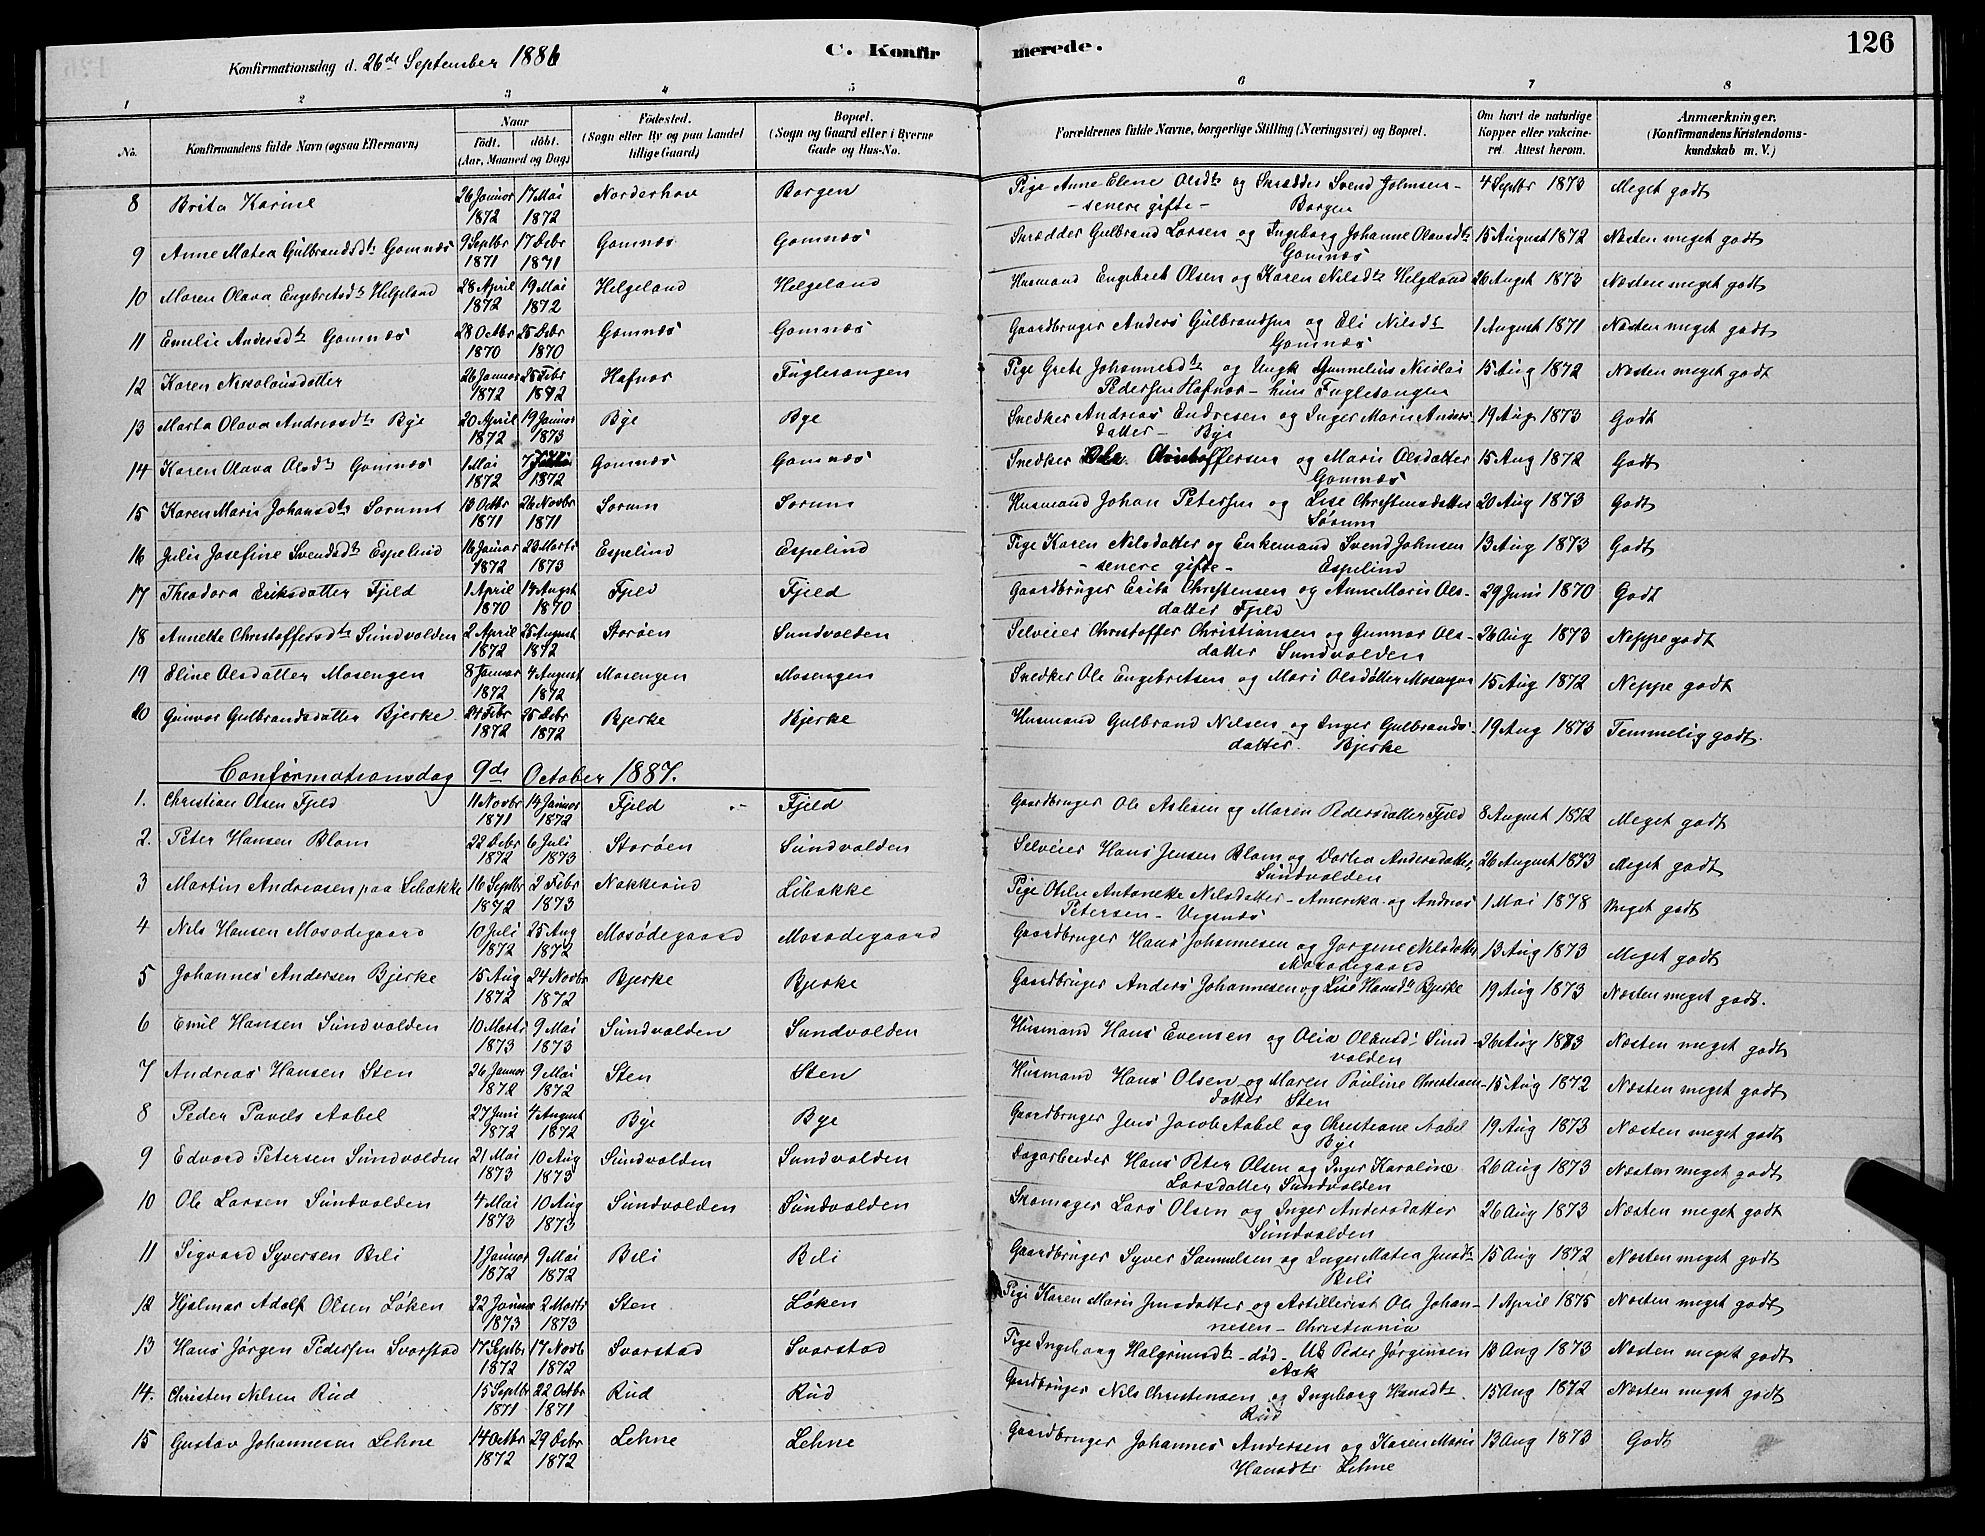 Konfirmationsdag d. 26de September 1886
C. Konfirmerede.
126
1 2 3 4 5 6 7 8
No.
Konfirmandens fulde Navn (ogsaa Efternavn)
Naar
født. døbt.
(Aar, Maaned og Dag)
Fødested.
(Sogn eller By og paa Landet
tillige Gaard)
Bopæl.
(Sogn og Gaard eller i Byerne
Gade og Hus-No.
Forældrenes fulde Navne, borgerlige Stilling (Næringsvei) og Bopæl.
Om havt de naturlige
Kopper eller vakcine-
ret. Attest herom.
Anmærkninger.
(Konfirmandens Kristendoms-
kundskab m. V.)
8 Brita Karine 26 Januar 17 Mai Norderhov Borgen Pige Anne Elene Olsdtr og Skrædder Svend Johnsen - 4 Septbr 1873 Meget godt
1872 1872 - senere gifte - Borgen
9 Anne Matea Gulbrandsdtr Gomnæs 9 Septbr 17 Debr Gomnæs Gomnæs Skrædder Gulbrand Larsen og Ingeborg Johanne Olavsdtr 15 August 1872 Næsten meget godt
1871 1871 Gomnæs
10 Maren Olava Engebretsdtr Helgeland 28 April 19 Mai Helgeland Helgeland Husmand Engebret Olsen og Karen Nilsdtr Helgeland 26 Augst 1873 Næsten meget godt
1872 1872
11 Emelie Andersdtr Gomnæs 28 Octbr 25 Debr Gomnæs Gomnæs Gaardbruger Anders Gulbrandsen og Eli Nilsdtr 1 August 1871 Næsten meget godt
1870 1870 Gomnæs
12 Karen Nikolaisdatter 26 Januar 25 Febr Hafnor Fuglesangen Pige Grete Johannesdtr og Ungk Gunnelius Nicolai 15 Aug 1872 Næsten meget godt
1872 1872 Pedersen Hafnor - hun Fuglesangen
13 Marta Olava Andreasdtr Bye 20 April 19 Januar Bye Bye Snedker Andreas Endresen og Inger Marie Anders 19 Aug 1873 Godt
1872 1873 datter - Bye
14 Karen Olava Olsdtr Gomnæs 1 Mai 7 Gomnæs Gomnæs Snedker Christoffersen og Marie Olsdatter 15 Aug 1872 Godt
1872 1872 Gomnæs
15 Karen Marie Johansdtr Sorum 13 Octbr 26 Novbr Sorum Sorum Husmand Johan Petersen og Lise Christensdatter 20 Aug 1873 Godt
1871 1871 Sörum
16 Julie Josefine Svendsdtr Espelind 16 Januar 23 Marts Espelind Espelind Pige Karen Nilsdatter og Enkemand Svend Johnsen 13 Aug 1873 Godt
1872 1873 - senere gifte - Espelind
17 Theodora Eriksdatter Fjeld 1 April 14 Augst Fjeld Fjeld Gaardbruger Erik Christensen og Anne Marie Ols- 29 Juni 1870 Godt
1870 1870 datter Fjeld
18 Annette Christoffersdtr Sundvolden 2 April 25 August Storøen Sundvolden Selveier Christoffer Christiansen og Gunnor Ols- 26 Aug 1873 Neppe godt
1872 1872 datter Sundvolden
19 Eline Olsdatter Mosengen 8 Januar 4 August Mosengen Mosengen Snedker Ole Engebretsen og Mari Olsdatter Mosengen 15 Aug 1872 Neppe godt
1872 1872
20 Gunvor Gulbrandsdatter Bjerke 24 Febr 25 Debr Bjerke Bjerke Husmand Gulbrand Nilsen og Inger Gulbrands- 19 Aug 1873 Temmelig godt.
1872 1872 datter. Bjerke
Confirmationsdag 9de October 1887.
1. Christian Olsen Fjeld 11 Novbr 14 Januar Fjeld Fjeld Gaardbruger Ole Aslesen og Maren Pedersdatter Fjeld 8 August 1872 Meget godt
1871 1872
2. Peter Hansen Blom 22 Debr 6 Juli Storøen Sundvolden Selveier Hans Jensen Blom og Dorthea Andersdatter, 26 August 1873 Meget godt
1872 1873 Sundvolden
3 Martin Andreasen paa Libakke 16 Septbr 2 Febr Nakkerud Libakke Pige Oline Antonette Nilsdatter - Amerika og Andreas 1 Mai 1878 Meget godt
1872 1873 Petersen - Vegenæs
4 Nils Hansen Mosødegaard 10 Juli 25 Aug Mosødegaard Mosødegaard Gaardbruger Hans Johannesen og Jørgene Nilsdatter 13 Aug 1873 Meget godt
1872 1872 Mosødegaard
5 Johannes Andersen Bjerke 15 Aug 24 Novbr Bjerke Bjerke Gaardbruger Anders Johannesen og Lise Hansdtr Bjerke 19 Aug 1873 Næsten meget godt.
1872 1872
6 Emil Hansen Sundvolden 10 Marts 9 Mai Sundvolden Sundvolden Husmand Hans Evensen og Olia Olausdtr Sund- 26 Aug 1873 Næsten meget godt
1873 1873 volden
7 Andreas Hansen Sten 26 Januar 9 Mai Sten Sten Husmand Hans Olsen og Maren Pauline Christians- 15 Aug 1872 Næsten meget godt
1872 1872 datter Sten
8 Peder Pavels Aabel 27 Juni 4 August Bye Bye Gaardbruger Jens Jacob Aabel og Christiane Aabel 19 Aug 1873 Næsten meget godt
1872 1872 Bye
9 Edvard Petersen Sundvolden 21 Mai 10 Aug Sundvolden Sundvolden Dagarbeider Hans Peter Olsen og Inger Karoline 26 Aug 1873 Næsten meget godt
1873 1873 Larsdatter Sundvolden
10 Ole Larsen Sundvolden 4 Mai 10 Aug Sundvolden Sundvolden Skomager Lars Olsen og Inger Andersdatter 26 Aug 1873 Næsten meget godt
1873 1873 Sundvolden
11 Sigvard Syversen Beli 1 Januar 9 Mai Beli Beli Gaardbruger Syver Samuelsen og Inger Matea Jensdtr 15 Aug 1872 Næsten meget godt
1872 1872 Beli
12 Hjalmar Adolf Olsen Løken 22 Januar 2 Marts Sten Løken Pige Karen Marie Jensdatter og Artillerist Ole Johan- 1 April 1875 Næsten meget godt
1873 1873 nesen - Christiania
13 Hans Jørgen Pedersen Svarstad 17 Septbr 17 Novb Svarstad Svarstad Pige Ingeborg Halgrimsdtr - død - Uk Peder Jørgensen 13 Aug 1873 Næsten meget godt
1872 1872 Ask
14. Christen Nilsen Rud 15 Septbr 22 Octbr Rud Rud Gaardbruger Nils Christensen og Ingeborg Hansdtr. 15 Aug 1872 Næsten meget godt
1871 1871 Rud
15 Gustav Johannesen Lehne 14 Octbr 29 Debr Lehne Lehne Gaardbruger Johannes Andersen og Karen Marie 13 Aug 1873 Godt
1872 1872 Hansdtr Lehne